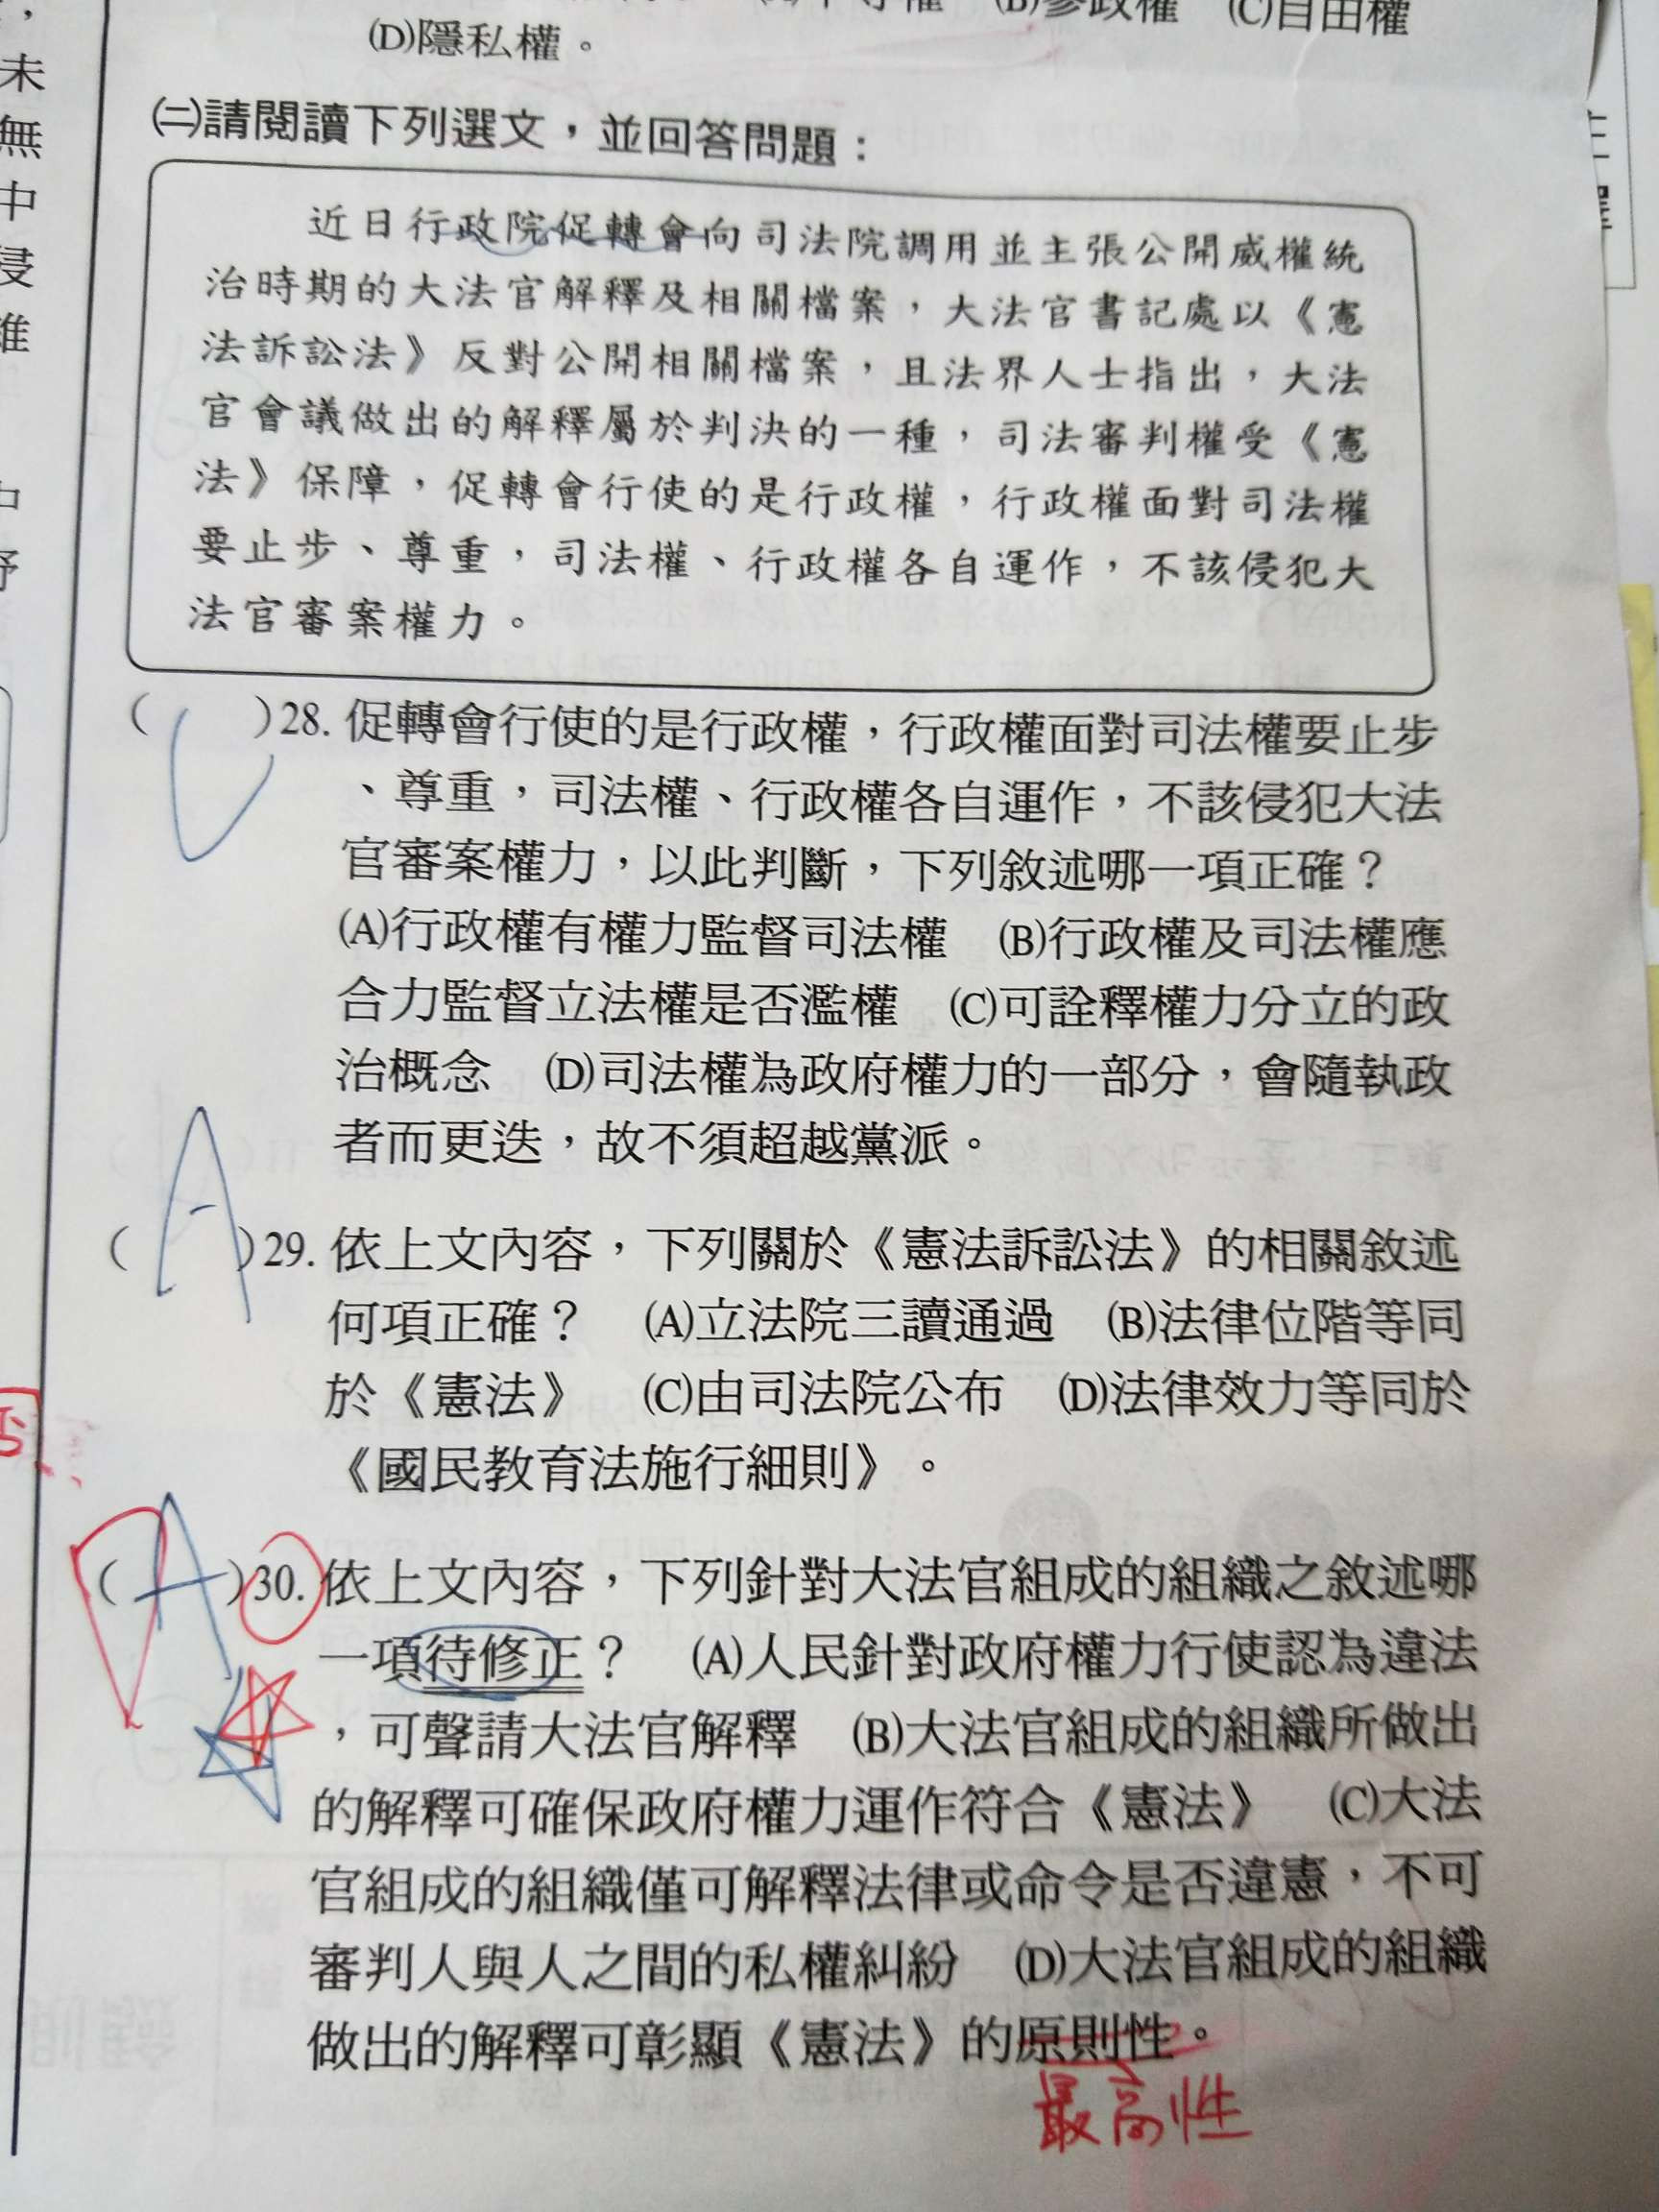 (B)參政權　(C)自由權
(D)隱私權。
㈡請閱讀下列選文，並回答問題：
近日行政院促轉會向司法院調用並主張公開威權統
治時期的大法官解釋及相關檔案，大法官書記處以《憲
法訴訟法》反對公開相關檔案，且法界人士指出，大法
官會議做出的解釋屬於判決的一種，司法審判權受《憲
法》保障，促轉會行使的是行政權，行政權面對司法權
要止步、尊重，司法權、行政權各自運作，不該侵犯大
法官審案權力。
(　)28. 促轉會行使的是行政權，行政權面對司法權要止步
、尊重，司法權、行政權各自運作，不該侵犯大法
官審案權力，以此判斷，下列敘述哪一項正確？
(A)行政權有權力監督司法權　(B)行政權及司法權應
合力監督立法權是否濫權　(C)可詮釋權力分立的政
治概念　(D)司法權為政府權力的一部分，會隨執政
者而更迭，故不須超越黨派。
( A )29. 依上文內容，下列關於《憲法訴訟法》的相關敘述
何項正確？　(A)立法院三讀通過　(B)法律位階等同
於《憲法》　(C)由司法院公布　(D)法律效力等同於
《國民教育法施行細則》。
( A )30. 依上文內容，下列針對大法官組成的組織之敘述哪
一項待修正？　(A)人民針對政府權力行使認為違法
，可聲請大法官解釋　(B)大法官組成的組織所做出
的解釋可確保政府權力運作符合《憲法》　(C)大法
官組成的組織僅可解釋法律或命令是否違憲，不可
審判人與人之間的私權糾紛　(D)大法官組成的組織
做出的解釋可彰顯《憲法》的原則性。
最高性